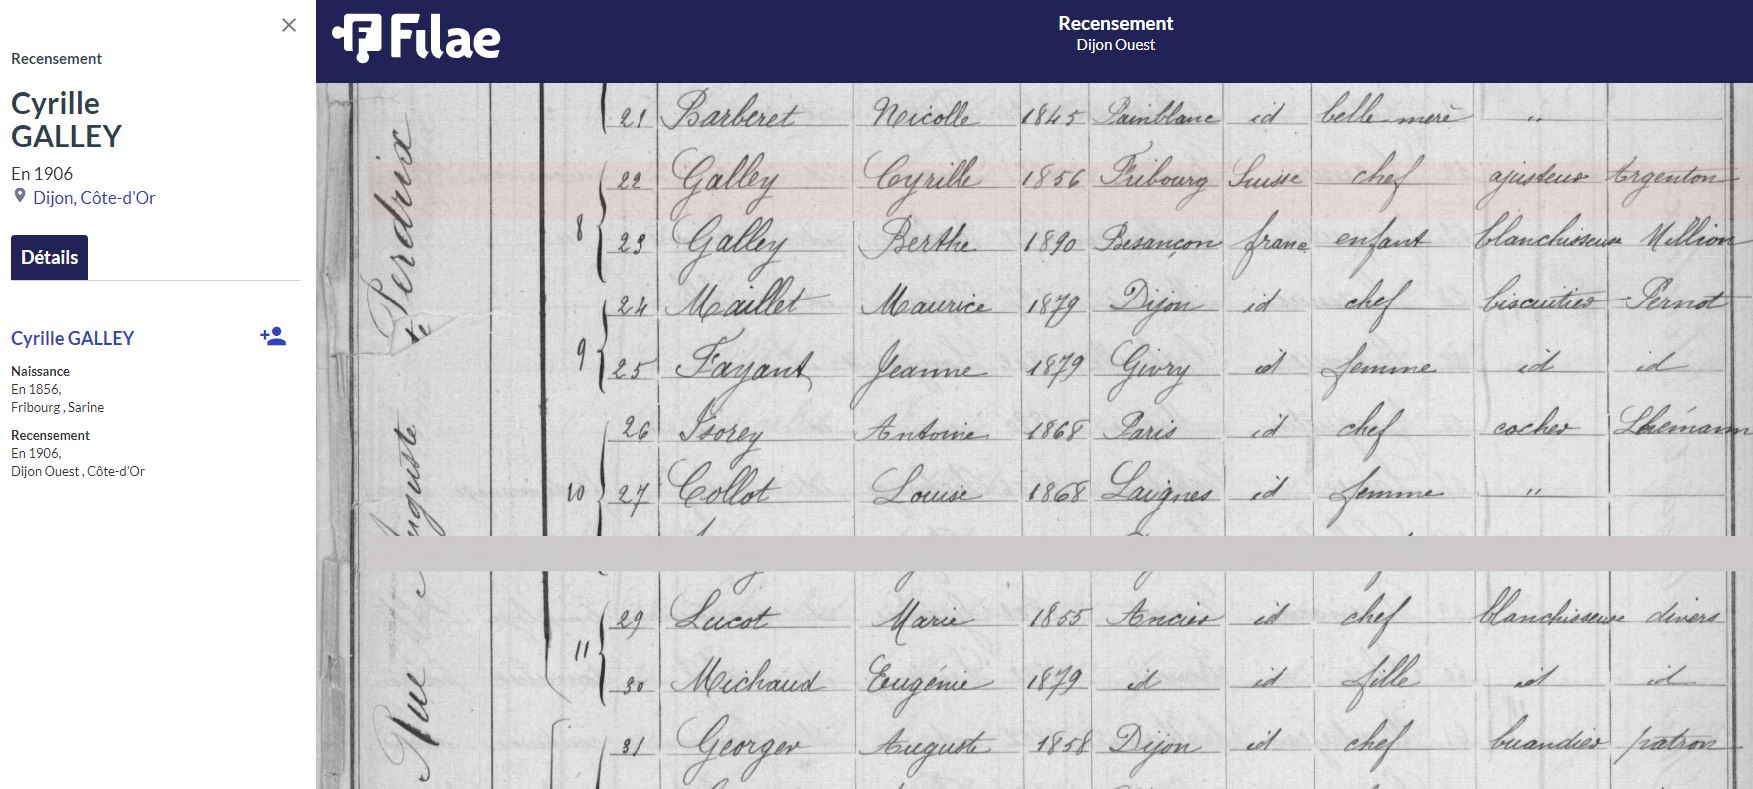 Recensement
Cyrille
GALLEY
En 1906
Dijon, Côte-d'Or
Détails
Cyrille GALLEY
Naissance
En 1856,
Fribourg , Sarine
Recensement
En 1906,
Dijon Ouest , Côte-d'Or
Filae
Recensement
Dijon Ouest
21 Barberet Nicolle 1845 Painblanc id belle mère "
22 Galley Cyrille 1856 Fribourg Suisse chef ajusteur Argenton
8
23 Galley Berthe 1890 Besançon franc enfant blanchisseuse Million
24 Maillet Maurice 1879 Dijon id chef biscuitier Pernot
9
25 Fayant Jeanne 1879 Givry id femme id id
26 Isorey Antoine 1868 Paris id chef cocher Lhémann
10
27 Collot Louise 1868 Laignes id femme "
29 Lucot Marie 1855 Ancier id chef blanchisseuse divers
11
30 Michaud Eugénie 1879 id id fille id id
31 Georger Auguste 1858 Dijon id chef buandier patron
Rue Auguste Perdrix